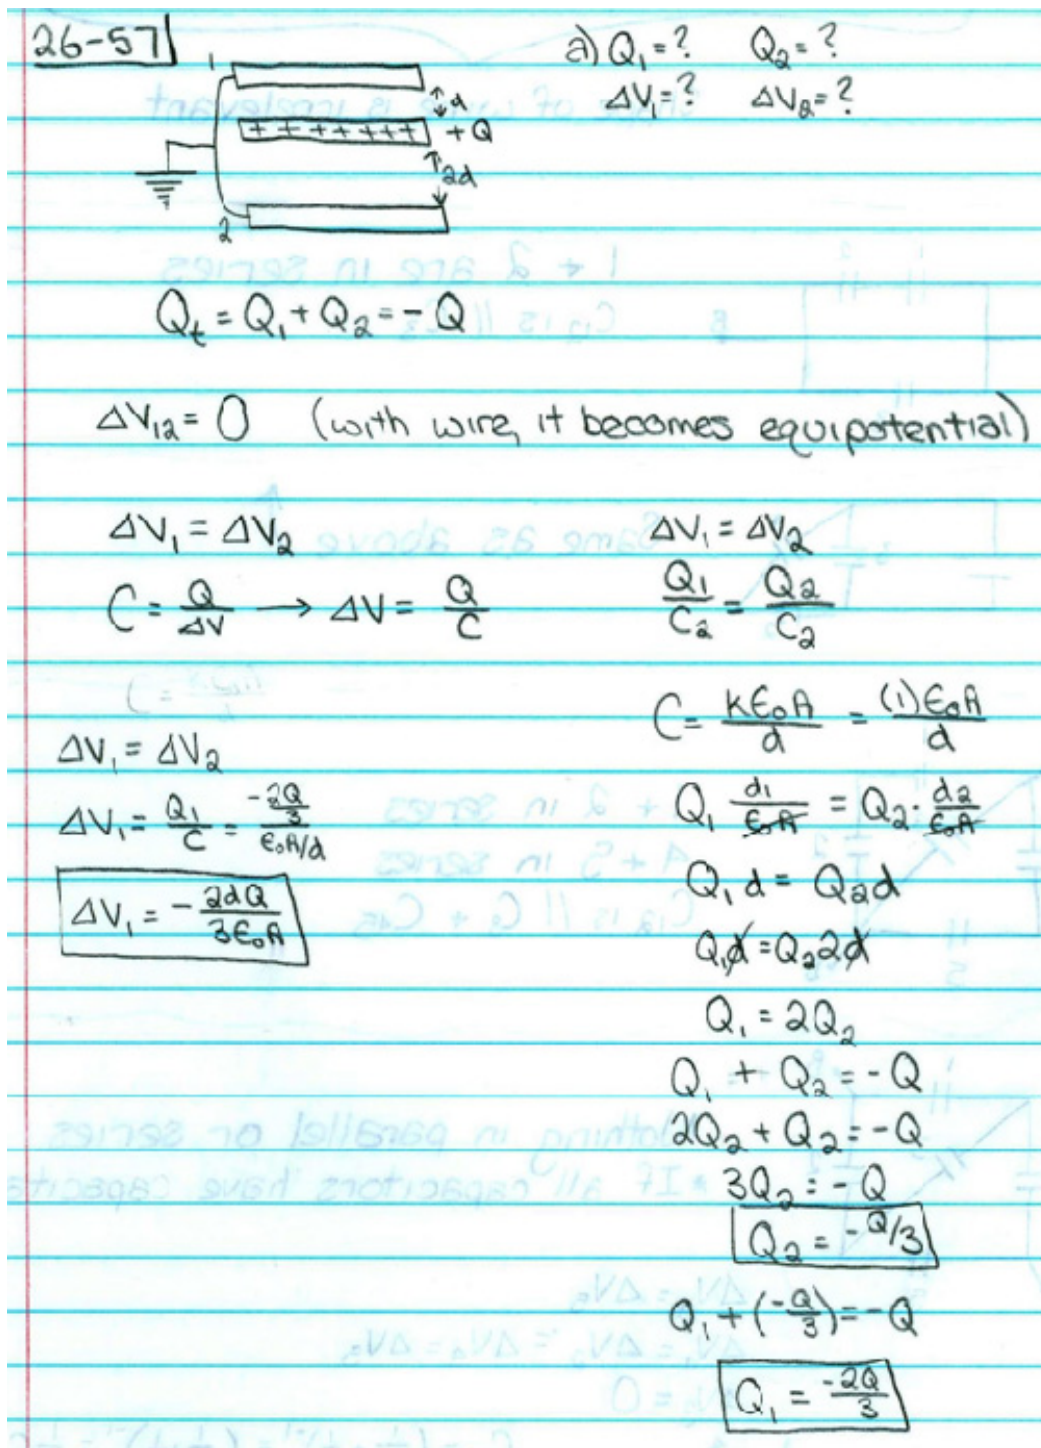 26-57
a) Q₁ = ? Q₂ = ?
ΔV₁ = ? ΔV₂ = ?
1
d
+ + + + + + + + Q
2d
2
Qₜ = Q₁ + Q₂ = - Q
ΔV₁₂ = 0 (with wire, it becomes equipotential)
ΔV₁ = ΔV₂
C = Q/ΔV → ΔV = Q/C
ΔV₁ = ΔV₂
ΔV₁ = Q₁/C = (-2Q/3)/(ε₀A/d)
ΔV₁ = - 2dQ/3ε₀A
ΔV₁ = ΔV₂
Q₁/C₂ = Q₂/C₂
C = kε₀A/d = (1)ε₀A/d
Q₁ d₁/ε₀A = Q₂ · d₂/ε₀A
Q₁d = Q₂d
Q₁d = Q₂2d
Q₁ = 2Q₂
Q₁ + Q₂ = - Q
2Q₂ + Q₂ = - Q
3Q₂ = - Q
Q₂ = - Q/3
Q₁ + (-Q/3) = - Q
Q₁ = -2Q/3